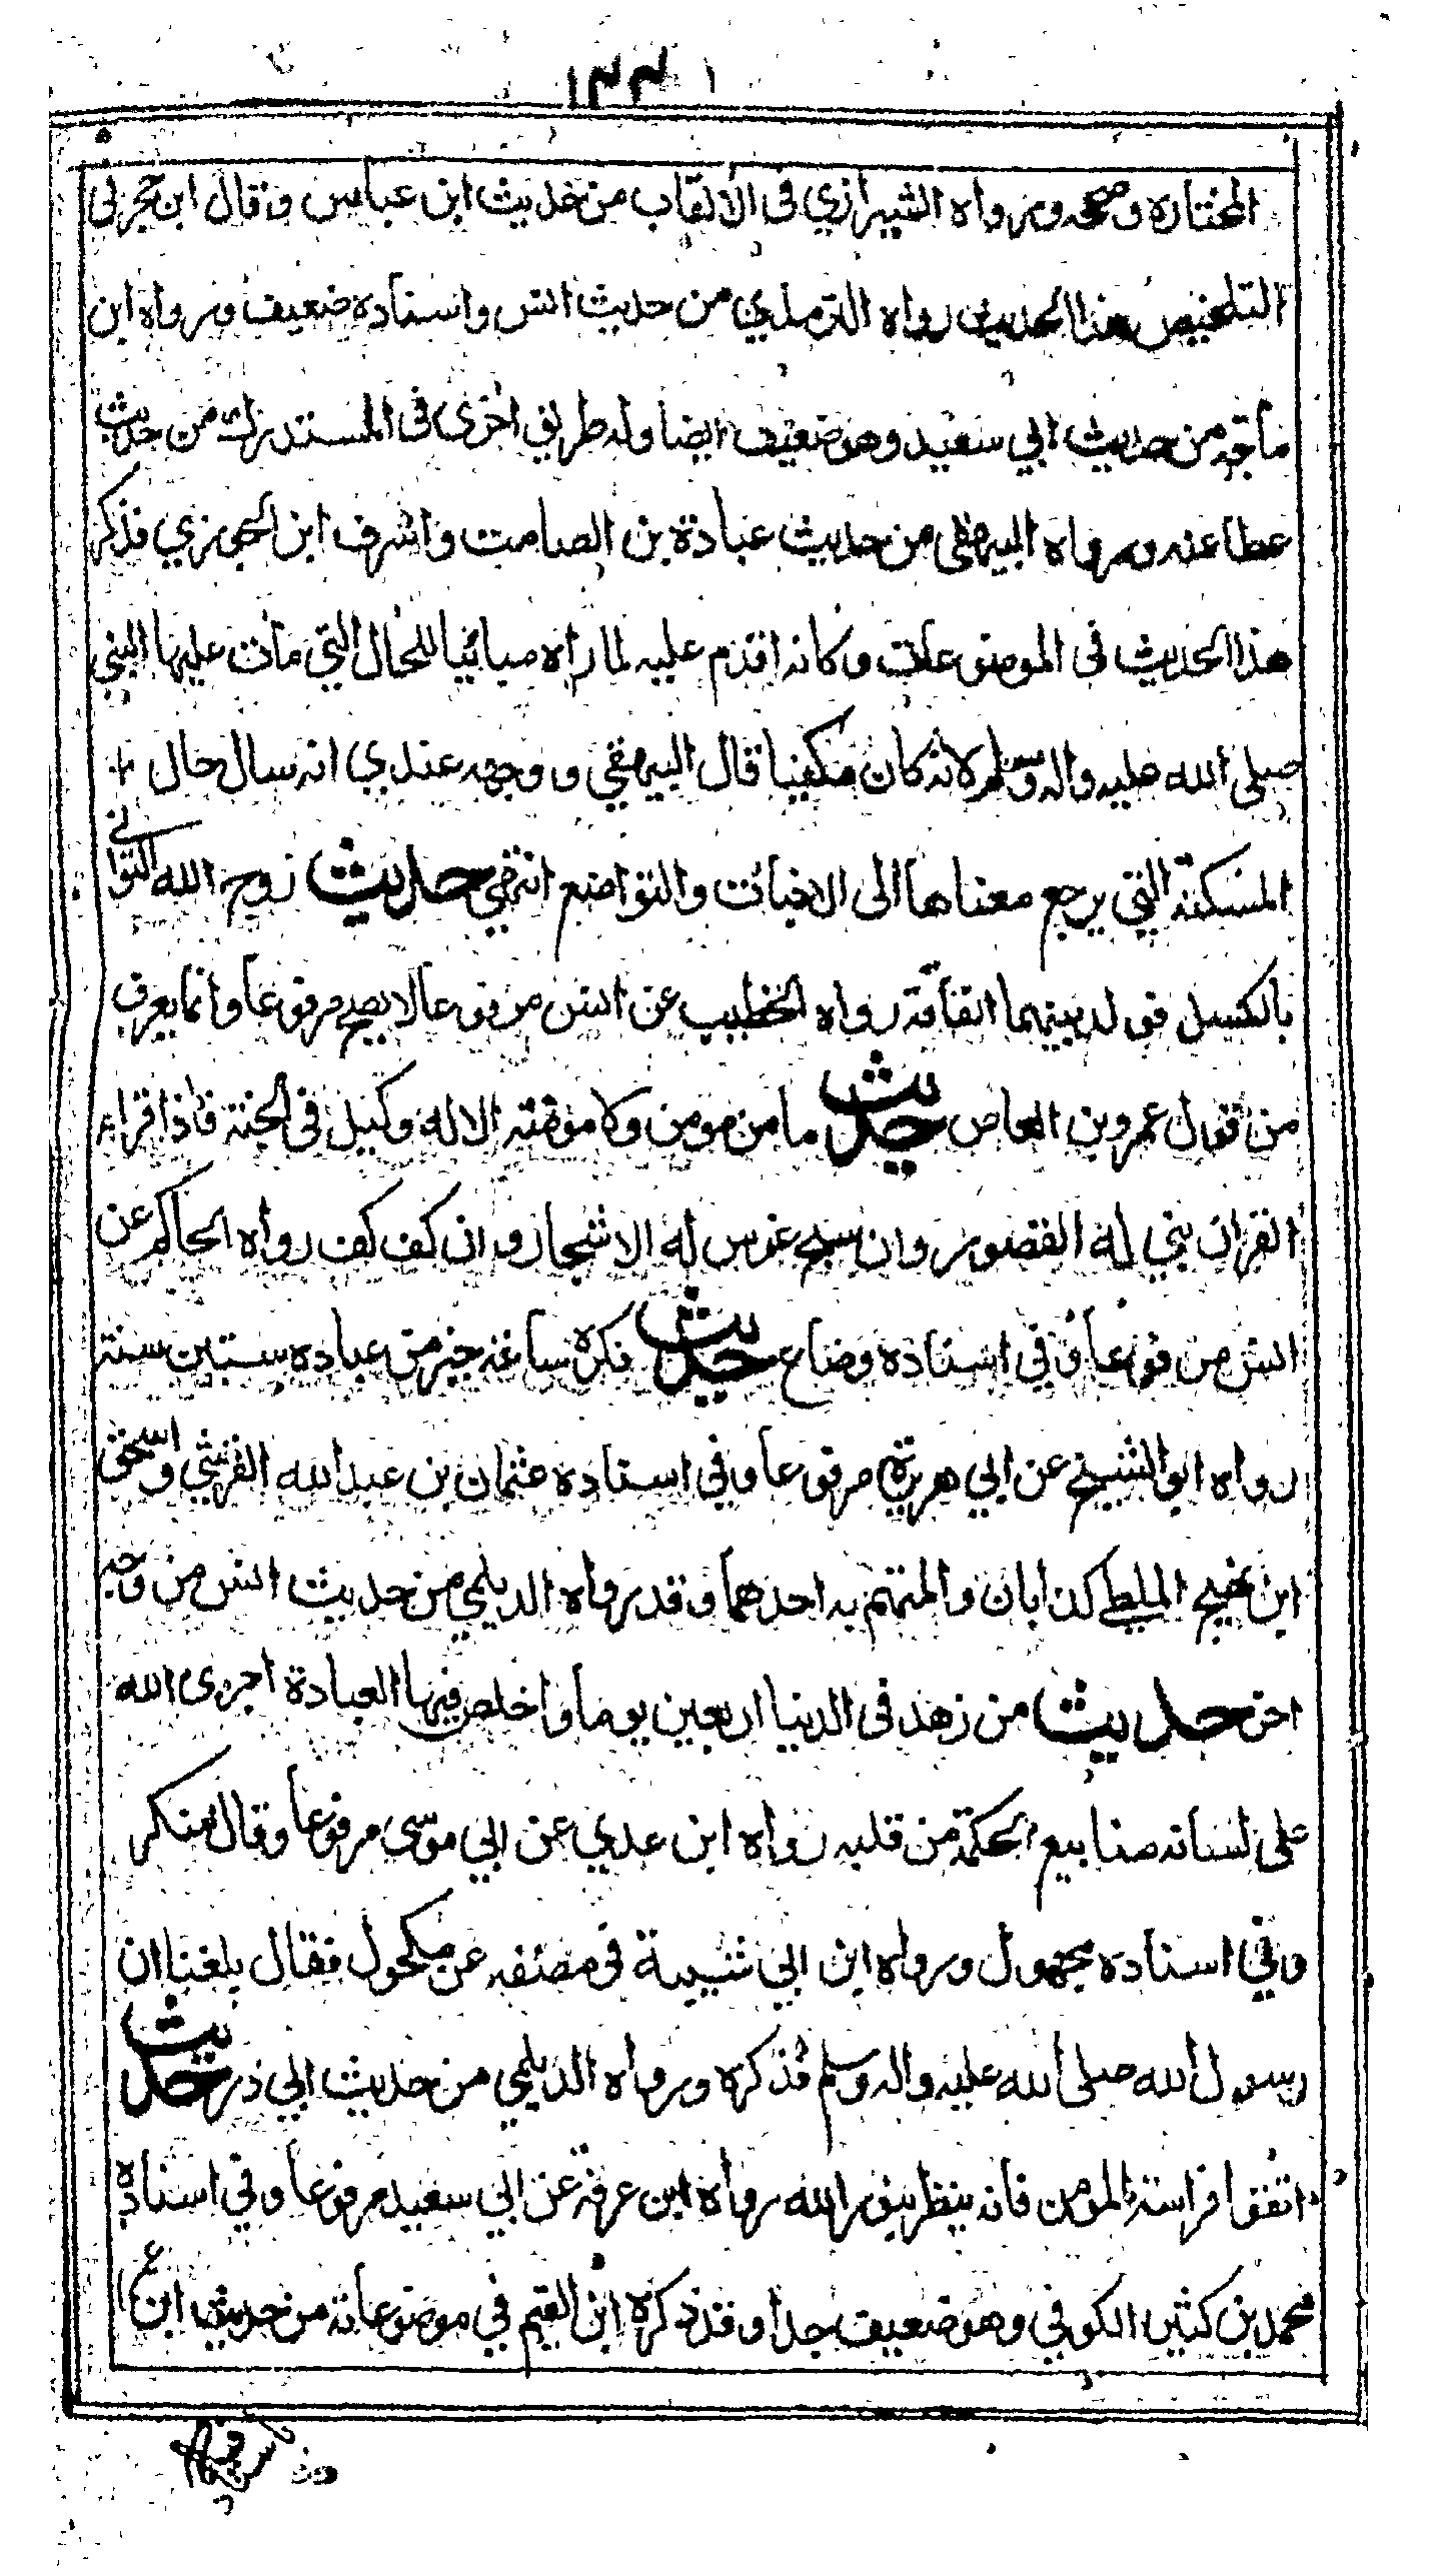 ١٣٣
المختاره وصححه ورواه الشيرازي فى الالقاب من حديث ابن عباس وقال ابن حجر فى
التلخيص هذا الحديث رواه الترمذي من حديث انس واسناده ضعيف ورواه ابن
ماجه من حديث ابي سعيد وهو ضعيف ايضا وله طريق اخرى فى المستدرك من حديث
عطا عنه ورواه البيهقي من حديث عبادة بن الصامت واسرف ابن الجوزي فذكر
هذا الحديث فى الموضوعات وكانه اقدم عليه لما راه مباينا للحال التي مات عليها النبي
صلى الله عليه واله وسلم لانه كان مكفيا قال البيهقي ووجهه عندي انه سال حال
المسكنة التي يرجع معناها الى الاخبات والتواضع انتهى حديث زوج الله التواني
بالكسل فولد بينهما الفاقة رواه الخطيب عن انس مرفوعا لا يصح مرفوعا وانما يعرف
من قول عمرو بن العاص حديث ما من مومن ولا مومنة الا له وكيل فى الجنة فاذا قراء
القران بنى له القصور وان سبح غرس له الاشجار وان كف كف رواه الحاكم عن
انس مرفوعا وفي اسناده وضاع حديث فكرة ساعة خير من عبادة ستين سنة
رواه ابو الشيخ عن ابي هريرة مرفوعا وفي اسناده عثمان بن عبد الله القرشي واسحق
ابن نجيح الملطي كذابان والمتهم به احدهما وقد رواه الديلمي من حديث انس من وجه
اخر حديث من زهد فى الدنيا اربعين يوما واخلص فيها العبادة اجرى الله
على لسانه صنابيع الحكمة من قلبه رواه ابن عدي عن ابي موسى مرفوعا وقال منكر
وفي اسناده مجهول ورواه ابن ابي شيبة فى مصنفه عن مكحول فقال بلغنا ان
رسول الله صلى الله عليه واله وسلم فذكره ورواه الديلمي من حديث ابي ذر حديث
اتقوا فراسة المومن فانه ينظر بنور الله رواه ابن عرفة عن ابي سعيد مرفوعا وفي اسناده
محمد بن كثير الكوفي وهو ضعيف جدا وقد ذكره ابن القيم في موضوعاته من حديث ابن عمر